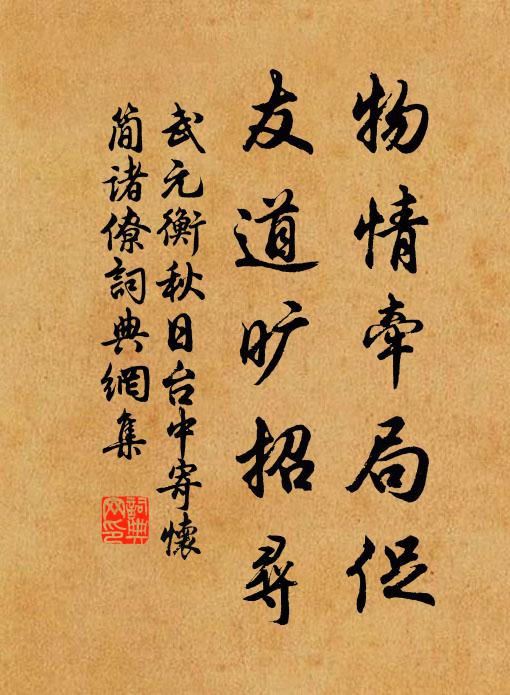 物情牵局促
友道旷招尋
武元衡秋日台中寄懷
简诸僚詞典網集
詞典網印